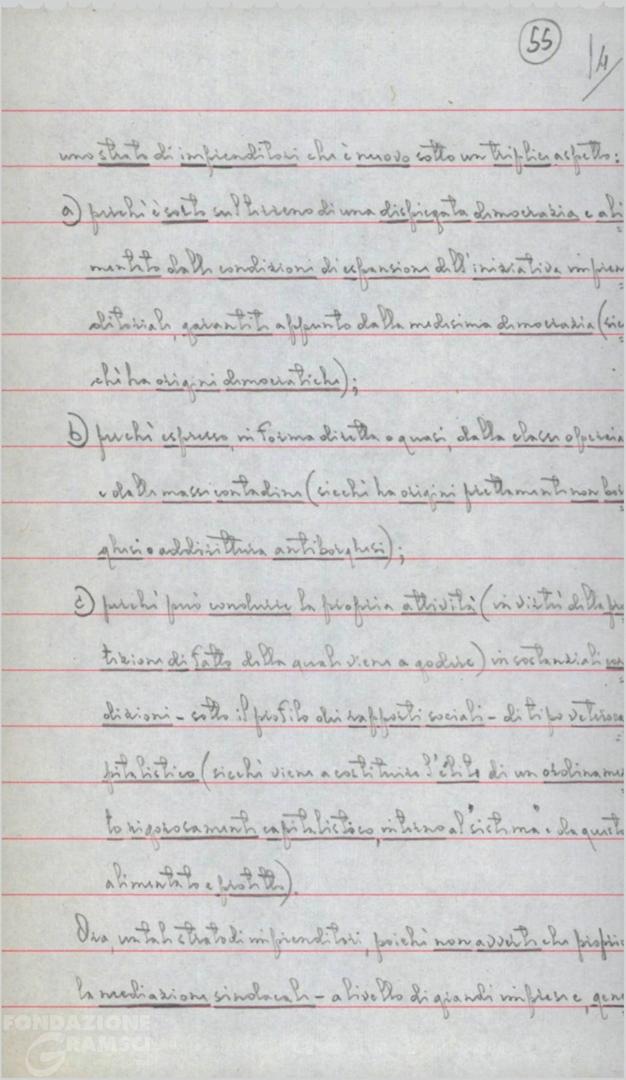 55
14
uno strato di imprenditori che è nuovo sotto un triplice aspetto:
a) perché è sorto sul terreno di una dispiegata democrazia e ali
mentato dalle condizioni di espansione dell'iniziativa impren
ditoriale, garantite appunto dalla medesima democrazia (sic
ché ha origini democratiche);
b) perché espresso, in forma diretta o quasi, dalla classe operaia
e dalle masse contadine (sicché ha origini prettamente non bor
ghesi o addirittura antiborghesi);
c) perché può condurre la propria attività (in virtù della
tizione di fatto della quale viene a godere) in sostanziali
dizioni – sotto il profilo dei rapporti sociali – di tipo veteroca
pitalistico (sicché viene a costituire l'élite di un ordiname
to rigorosamente capitalistico, interno al "sistema" e da questo
alimentato e protetto).
Ora, un tale strato di imprenditori, poiché non avverte che propri
la mediazione sindacale – a livello di grandi imprese e,
FONDAZIONE
GRAMSCI